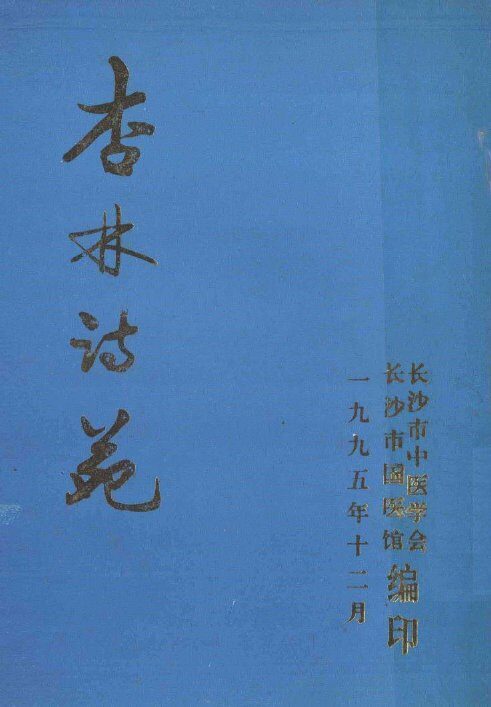 杏林诗苑
长沙市中医学会
长沙市国医馆
编印
一九九五年十二月